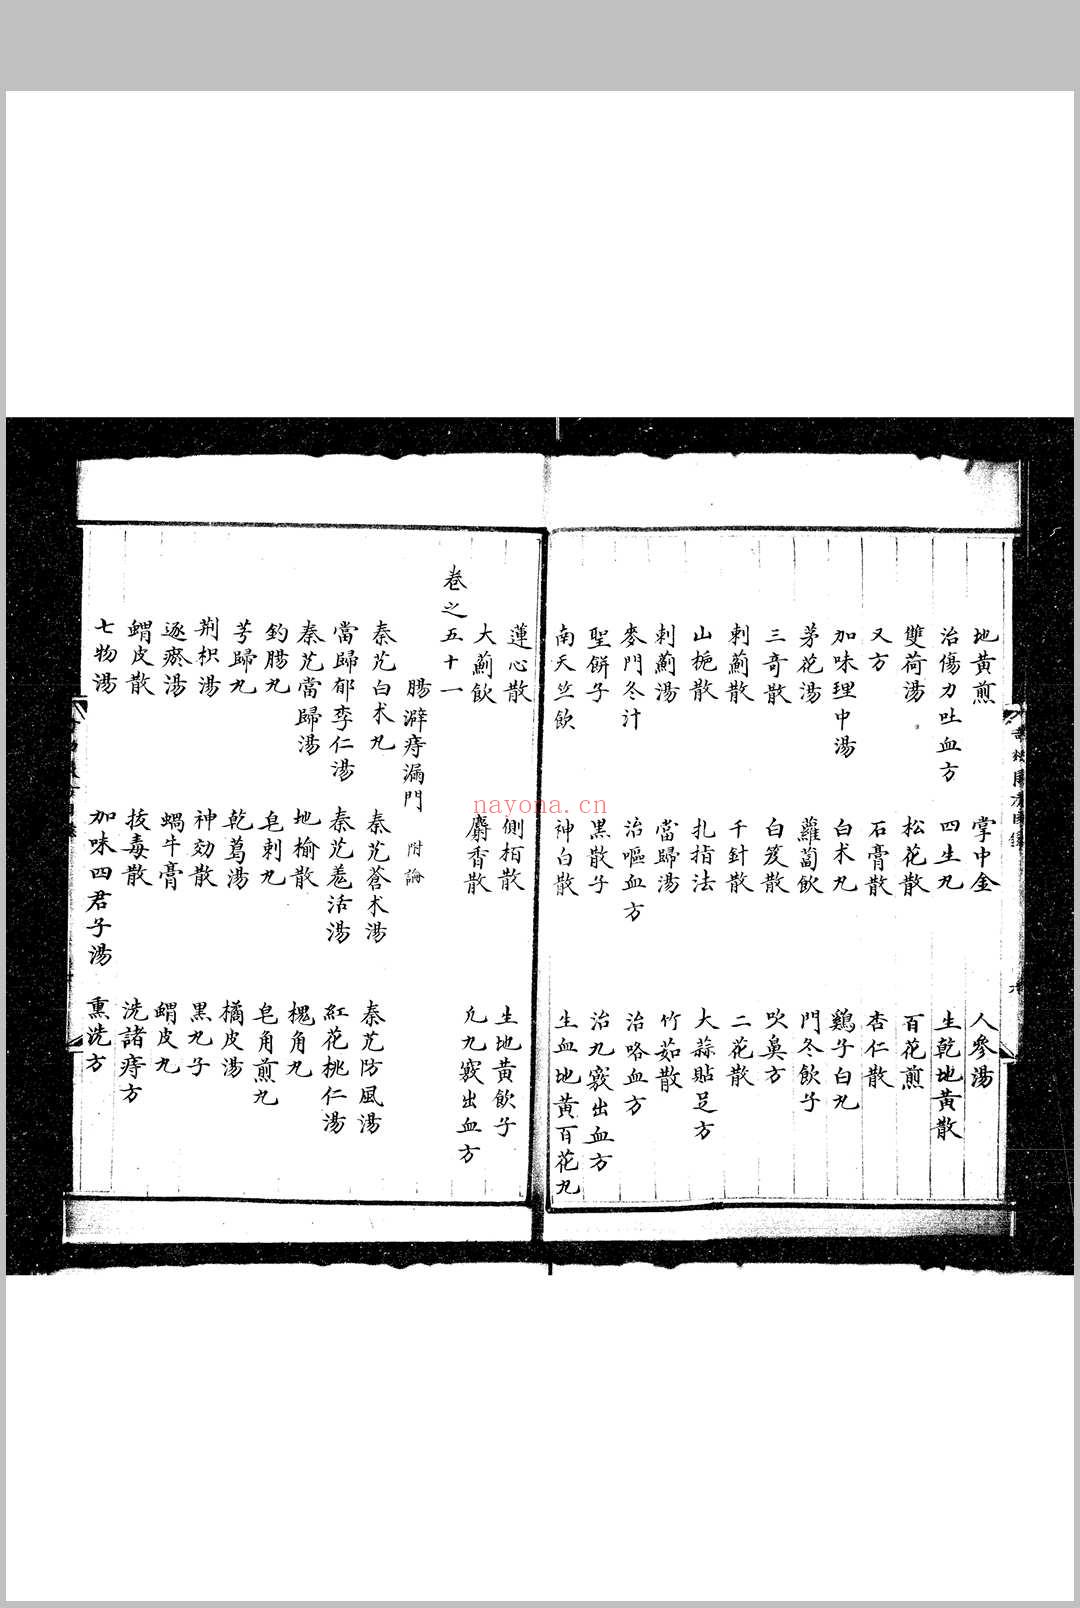 地黃煎 掌中金 人參湯
治傷力吐血方 四生丸 生乾地黃散
雙荷湯 松花散 百花煎
又方 石膏散 杏仁散
加味理中湯 白术丸 鷄子白丸
茅花湯 蘿蔔飲 門冬飲子
三奇散 白芨散 吹鼻方
刺薊散 千針散 二花散
山梔散 扎指法 大蒜貼足方
刺薊湯 當歸湯 竹茹散
麥門冬汁 治嘔血方 治咯血方
聖餅子 黑散子 治九竅出血方
南天竺飲 神白散 生血地黃百花丸
蓮心散 側栢散 生地黃飲子
大薊飲 麝香散 九竅出血方
卷之五十一
腸澼痔漏門 附論
秦艽白术丸 秦艽蒼术湯 秦艽防風湯
當歸郁李仁湯 秦艽羌活湯 紅花桃仁湯
秦艽當歸湯 地榆散 槐角丸
釣腸丸 皂刺丸 皂角煎丸
芎歸丸 乾葛湯 橘皮湯
荆枳湯 神効散 黑丸子
逐瘀湯 蝸牛膏 蝟皮丸
蝟皮散 拔毒散 洗諸痔方
七物湯 加味四君子湯 熏洗方
nayona.cn